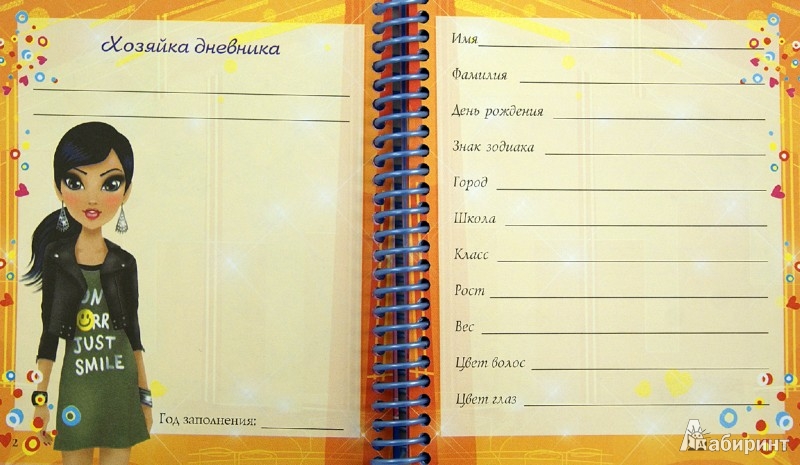 Хозяйка дневника
JUST
SMILE
Год заполнения:
2
Имя
Фамилия
День рождения
Знак зодиака
Город
Школа
Класс
Рост
Вес
Цвет волос
Цвет глаз
Лабиринт